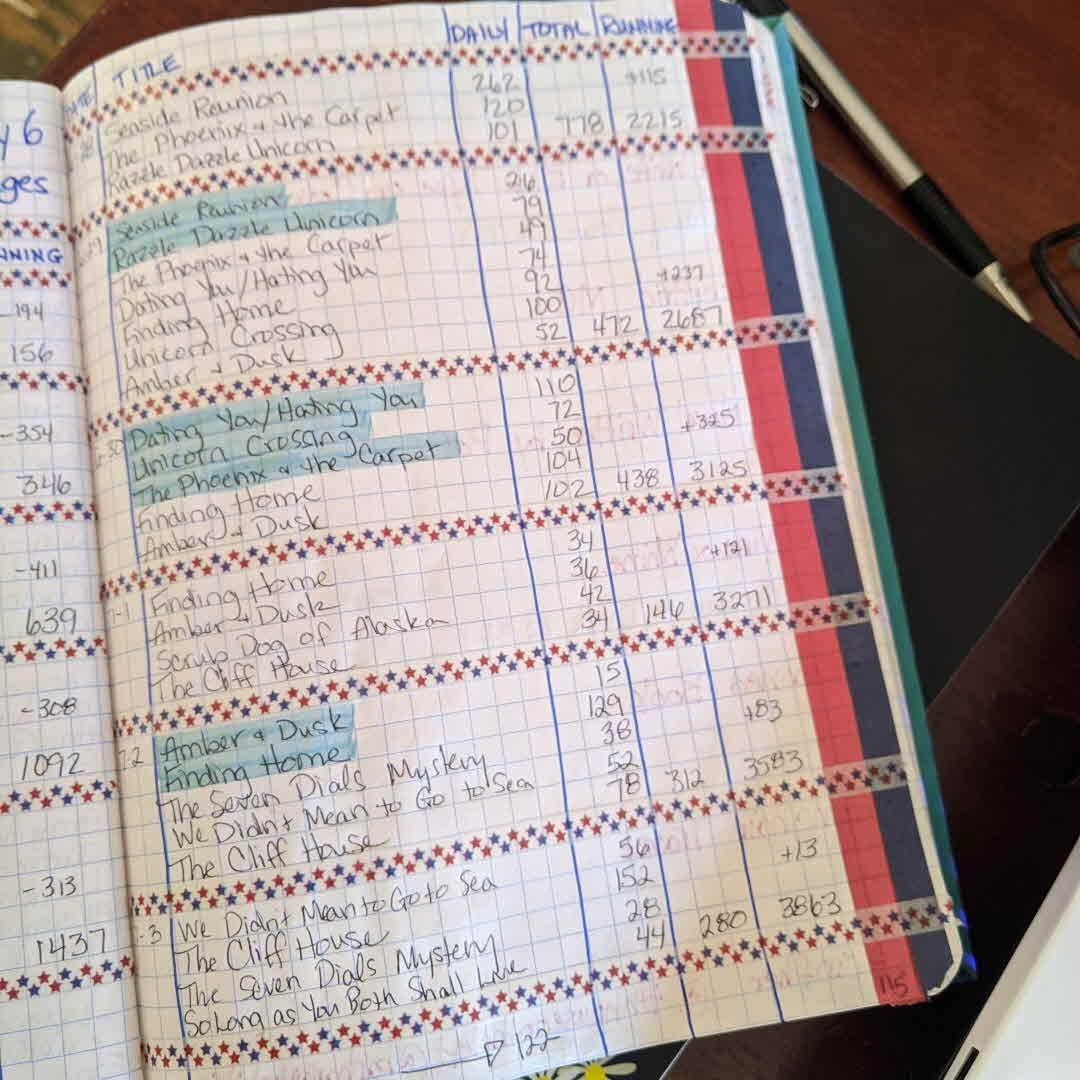 y 6
ges
NNING
-194
156
-354
346
-411
639
-308
1092
-313
1437
TITLE DAILY TOTAL RUNNING
Seaside Reunion 262 +115
The Phoenix & the Carpet 120
Razzle Dazzle Unicorn 101 778 2215
Seaside Reunion 26
Razzle Dazzle Unicorn 79
The Phoenix & the Carpet 49
Dating You/Hating You 74
Finding Home 92 +237
Unicorn Crossing 100
Amber & Dusk 52 472 2687
Dating You/Hating You 110
Unicorn Crossing 72
The Phoenix & the Carpet 50 +325
Finding Home 104
Amber & Dusk 102 438 3125
Finding Home 34
Amber & Dusk 36 +121
Scrub Dog of Alaska 42
The Cliff House 34 146 3271
7-2 Amber & Dusk 15
Finding Home 129
The Seven Dials Mystery 38 +83
We Didn't Mean to Go to Sea 52
The Cliff House 78 312 3583
-3 We Didn't Mean to Go to Sea 56 +13
The Cliff House 152
The Seven Dials Mystery 28
So Long as You Both Shall Live 44 280 3863
115
122